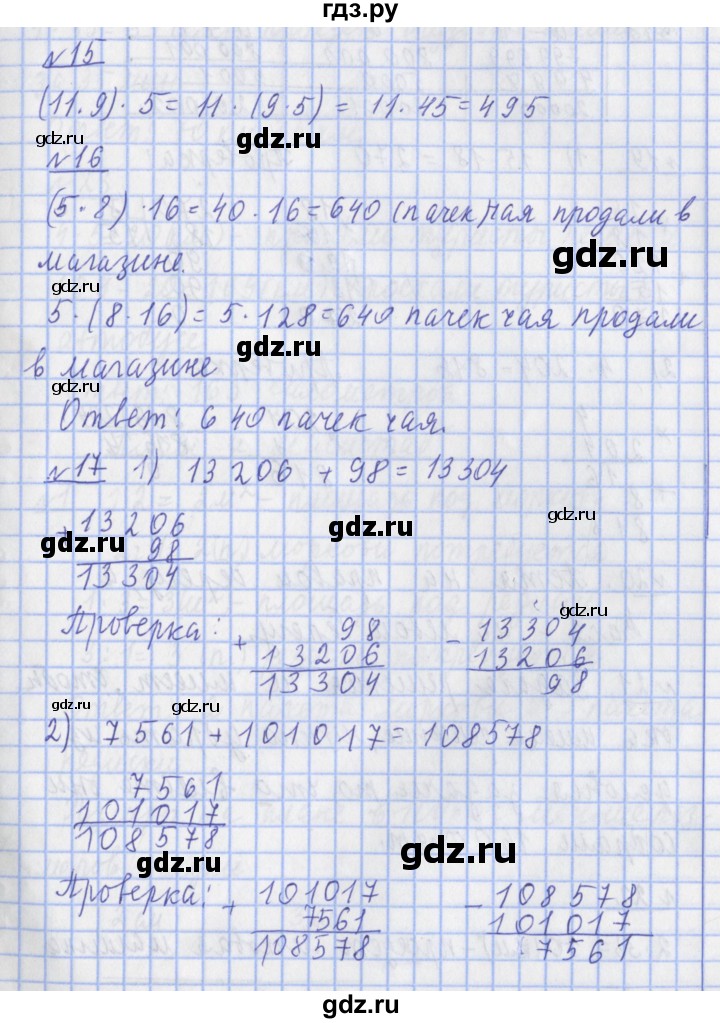 гдз.ру
№15
(11·9)·5=11·(9·5)=11·45=495
gdz.ru gdz.ru
№16
(5·8)·16=40·16=640 (пачек) чая продали в
gdz.ru
магазине.
gdz.ru
5·(8·16)=5·128=640 пачек чая продали
gdz.ru
в магазине
gdz.ru
Ответ: 640 пачек чая.
№17 1) 13206+98=13304
gdz.ru gdz.ru
+ 13206
98
13304
gdz.ru
gdz.ru
Проверка: + 98 - 13304
13206 13206
13304 98
gdz.ru gdz.ru
2) 7561+101017=108578
7561
101017
108578
gdz.ru gdz.ru
Проверка: + 101017 - 108578
7561 101017
108578 7561
gdz.ru